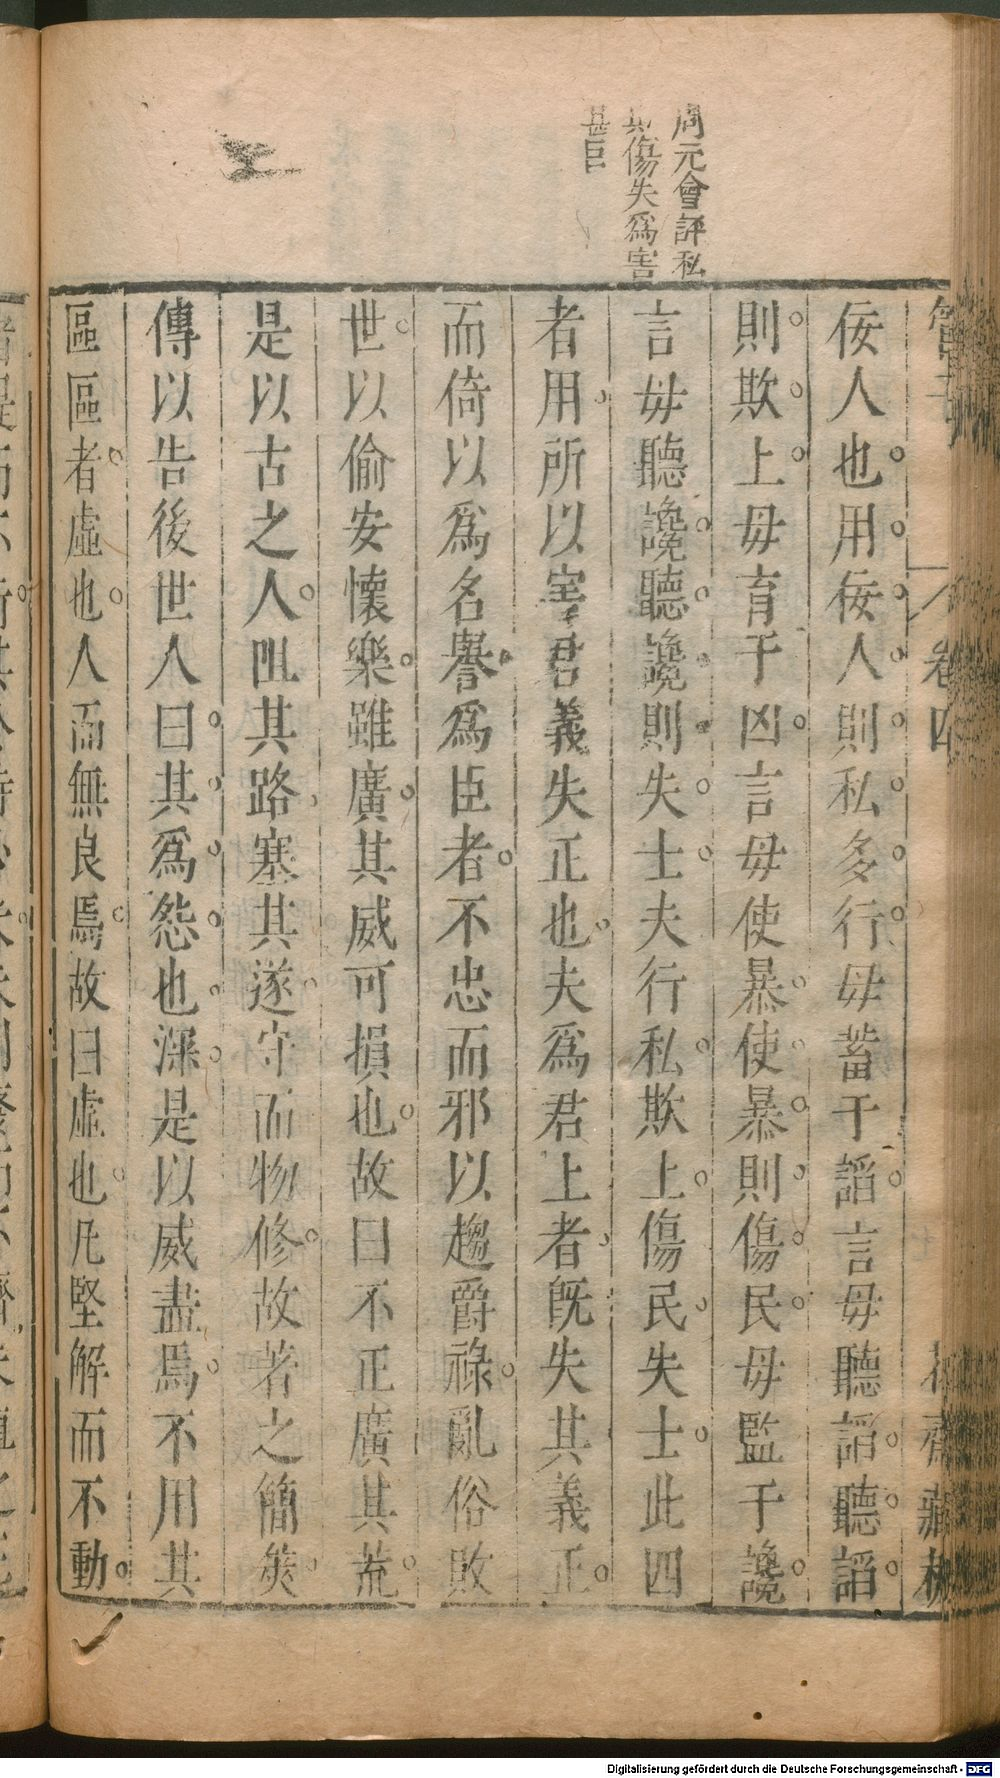 周元會評私
欺傷失爲害
甚巨
管子 卷四 花齋藏板
佞人也用佞人則私多行毋蓄于謟言毋聽謟聽謟
則欺上毋育于凶言毋使暴使暴則傷民毋監于讒
言毋聽讒聽讒則失士夫行私欺上傷民失士此四
者用所以害君義失正也夫爲君上者既失其義正
而倚以爲名譽爲臣者不忠而邪以趨爵祿亂俗敗
世以偷安懷樂雖廣其威可損也故曰不正廣其荒
是以古之人阻其路塞其遂守而物修故著之簡筴
傳以告後世人曰其爲怨也深是以威盡焉不用其
區區者虛也人而無良焉故曰虛也凡堅解而不動
Digitalisierung gefördert durch die Deutsche Forschungsgemeinschaft - DFG